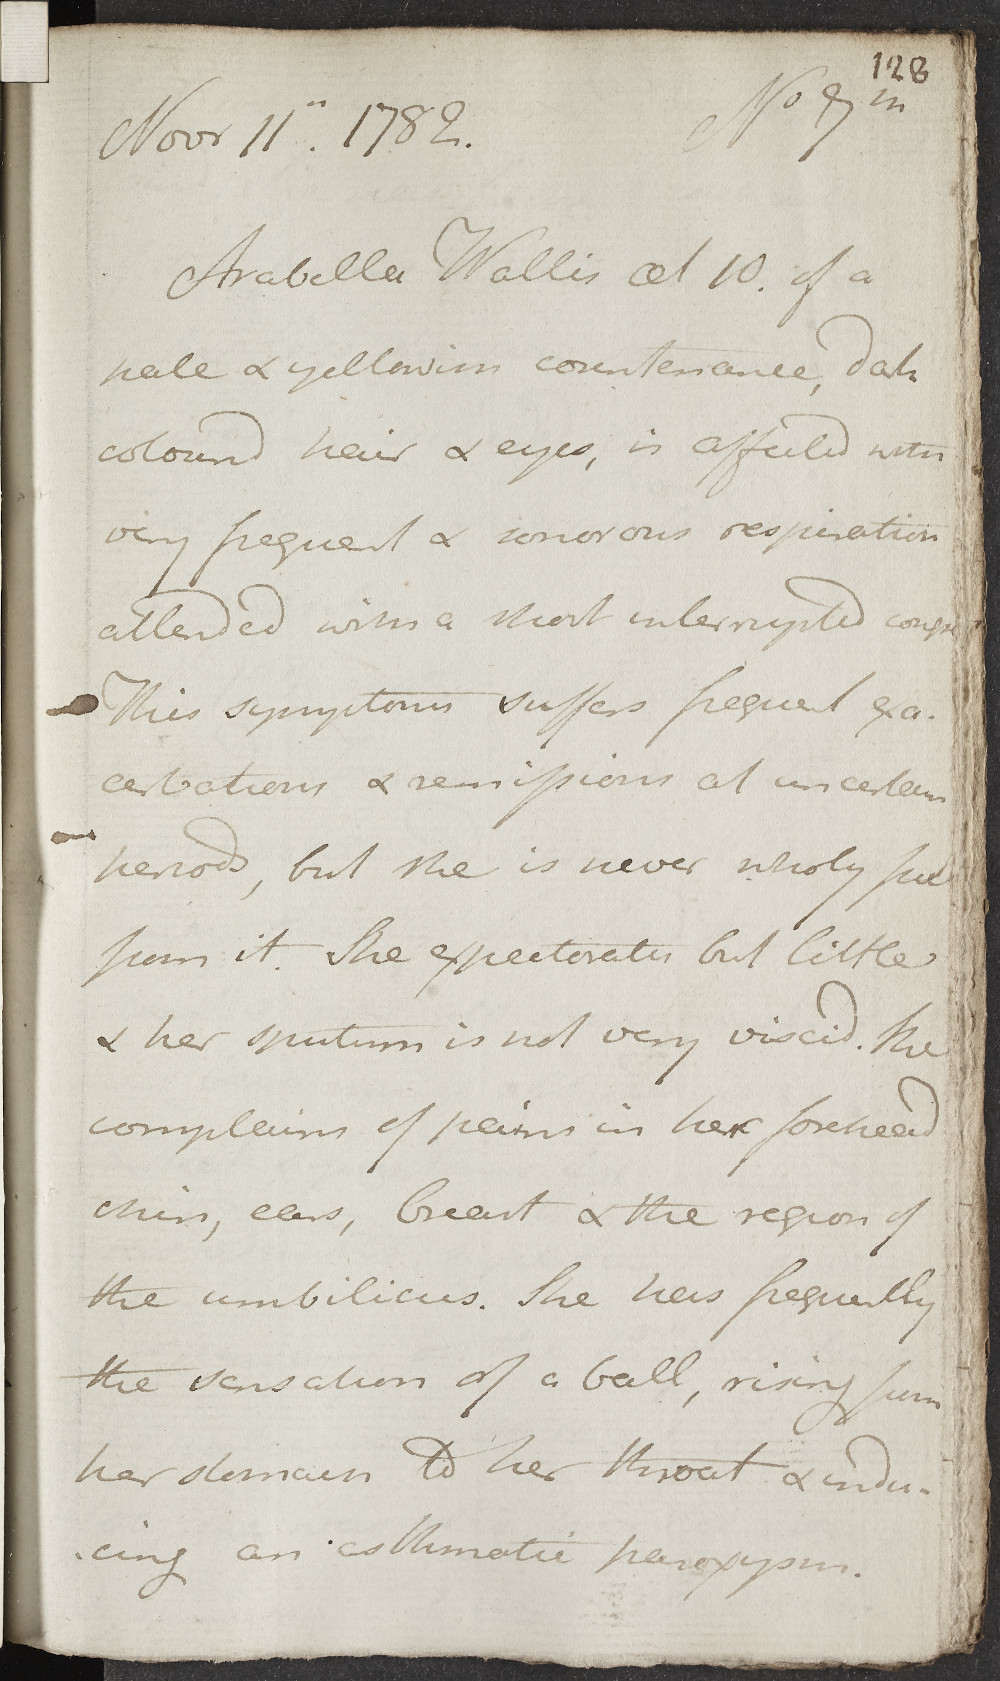 128
Novr 11th. 1782. No 27 m
Arabella Wallis æt 10. of a
pale & yellowish countenance, dark
coloured hair & eyes, is affected with
very frequent & sonorous respiration
attended with a short interrupted cough
This symptoms suffers frequent exa-
cerbations & remissions at uncertain
periods, but she is never wholy free
from it. She expectorates but little
& her sputum is not very viscid. She
complains of pains in her forehead
chin, ears, breast & the region of
the umbilicus. She has frequently
the sensation of a ball, rising from
her stomach to her throat & indu-
cing an asthmatic paroxysm.